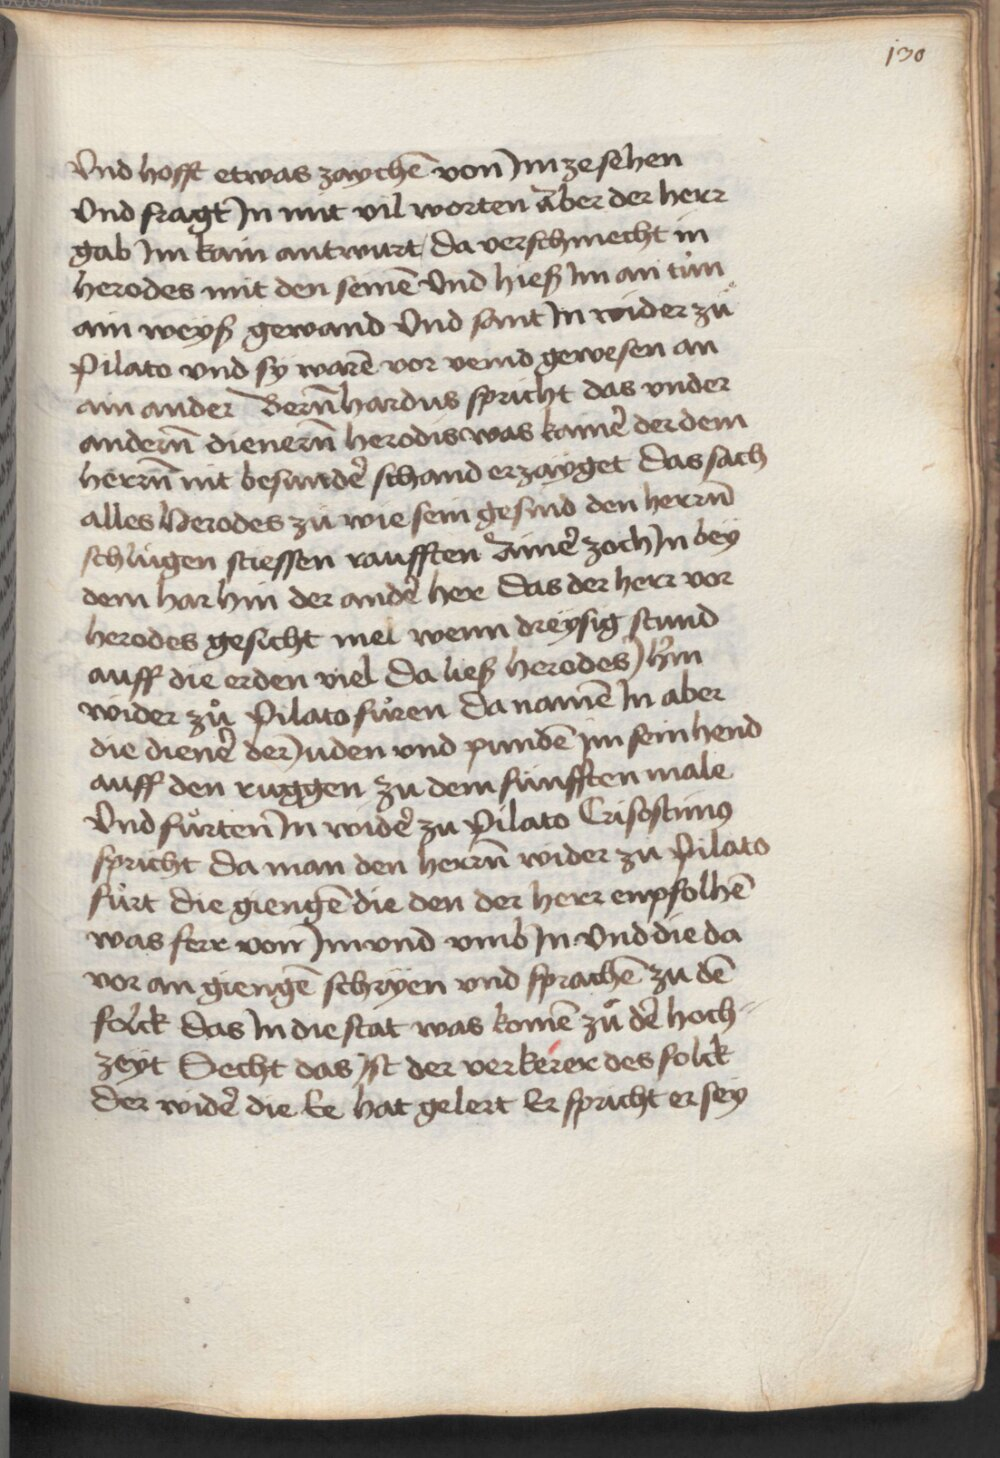 130
Vnd hofft etwas zaychē von Im ze sehen
Vnd fragt In mit vil worten Aber der herr
gab Im kain antwurt / Da verschmecht in
herodes mit den seinē Vnd hieß Im an tůn
ain weyß gewand Vnd sant In wider zů
Pilato vnd sy warē vor veind gewesen an
ain ander Bern̄hardus spricht das vnder
andern̄ dienern̄ herodis was kainer̄ der dem
herrn̄ nit besunder̄ schand erzayget Das sach
alles Herodes zů wie sein gesind den herrn̄
schlůgen stiessen raufften Ainer̄ zoch In bey
dem har hin der ander̄ her Das der herr vor
herodes gesicht mel wenn dreysig stund
auff die erden viel Da ließ herodes Ihm
wider zů Pilato fůren Da namē In aber
die diener̄ der Juden vnd pundē im sein hend
auff den ruggen zu dem fünfften male
Vnd fůrten In wider̄ zu Pilato Crisostimus
spricht Da man den herrn̄ wider zu Pilato
fůrt Die giengē die den der herr enpfolhē
was ferr von Im vnd vmb In Vnd die da
vor an giengē schryen vnd sprachē zu dē
folck Das In die stat was komē zů der̄ hoch-
zeyt Secht das Ist der verkerer des folck
Der wider̄ die Ee hat gelert Er spricht er sey